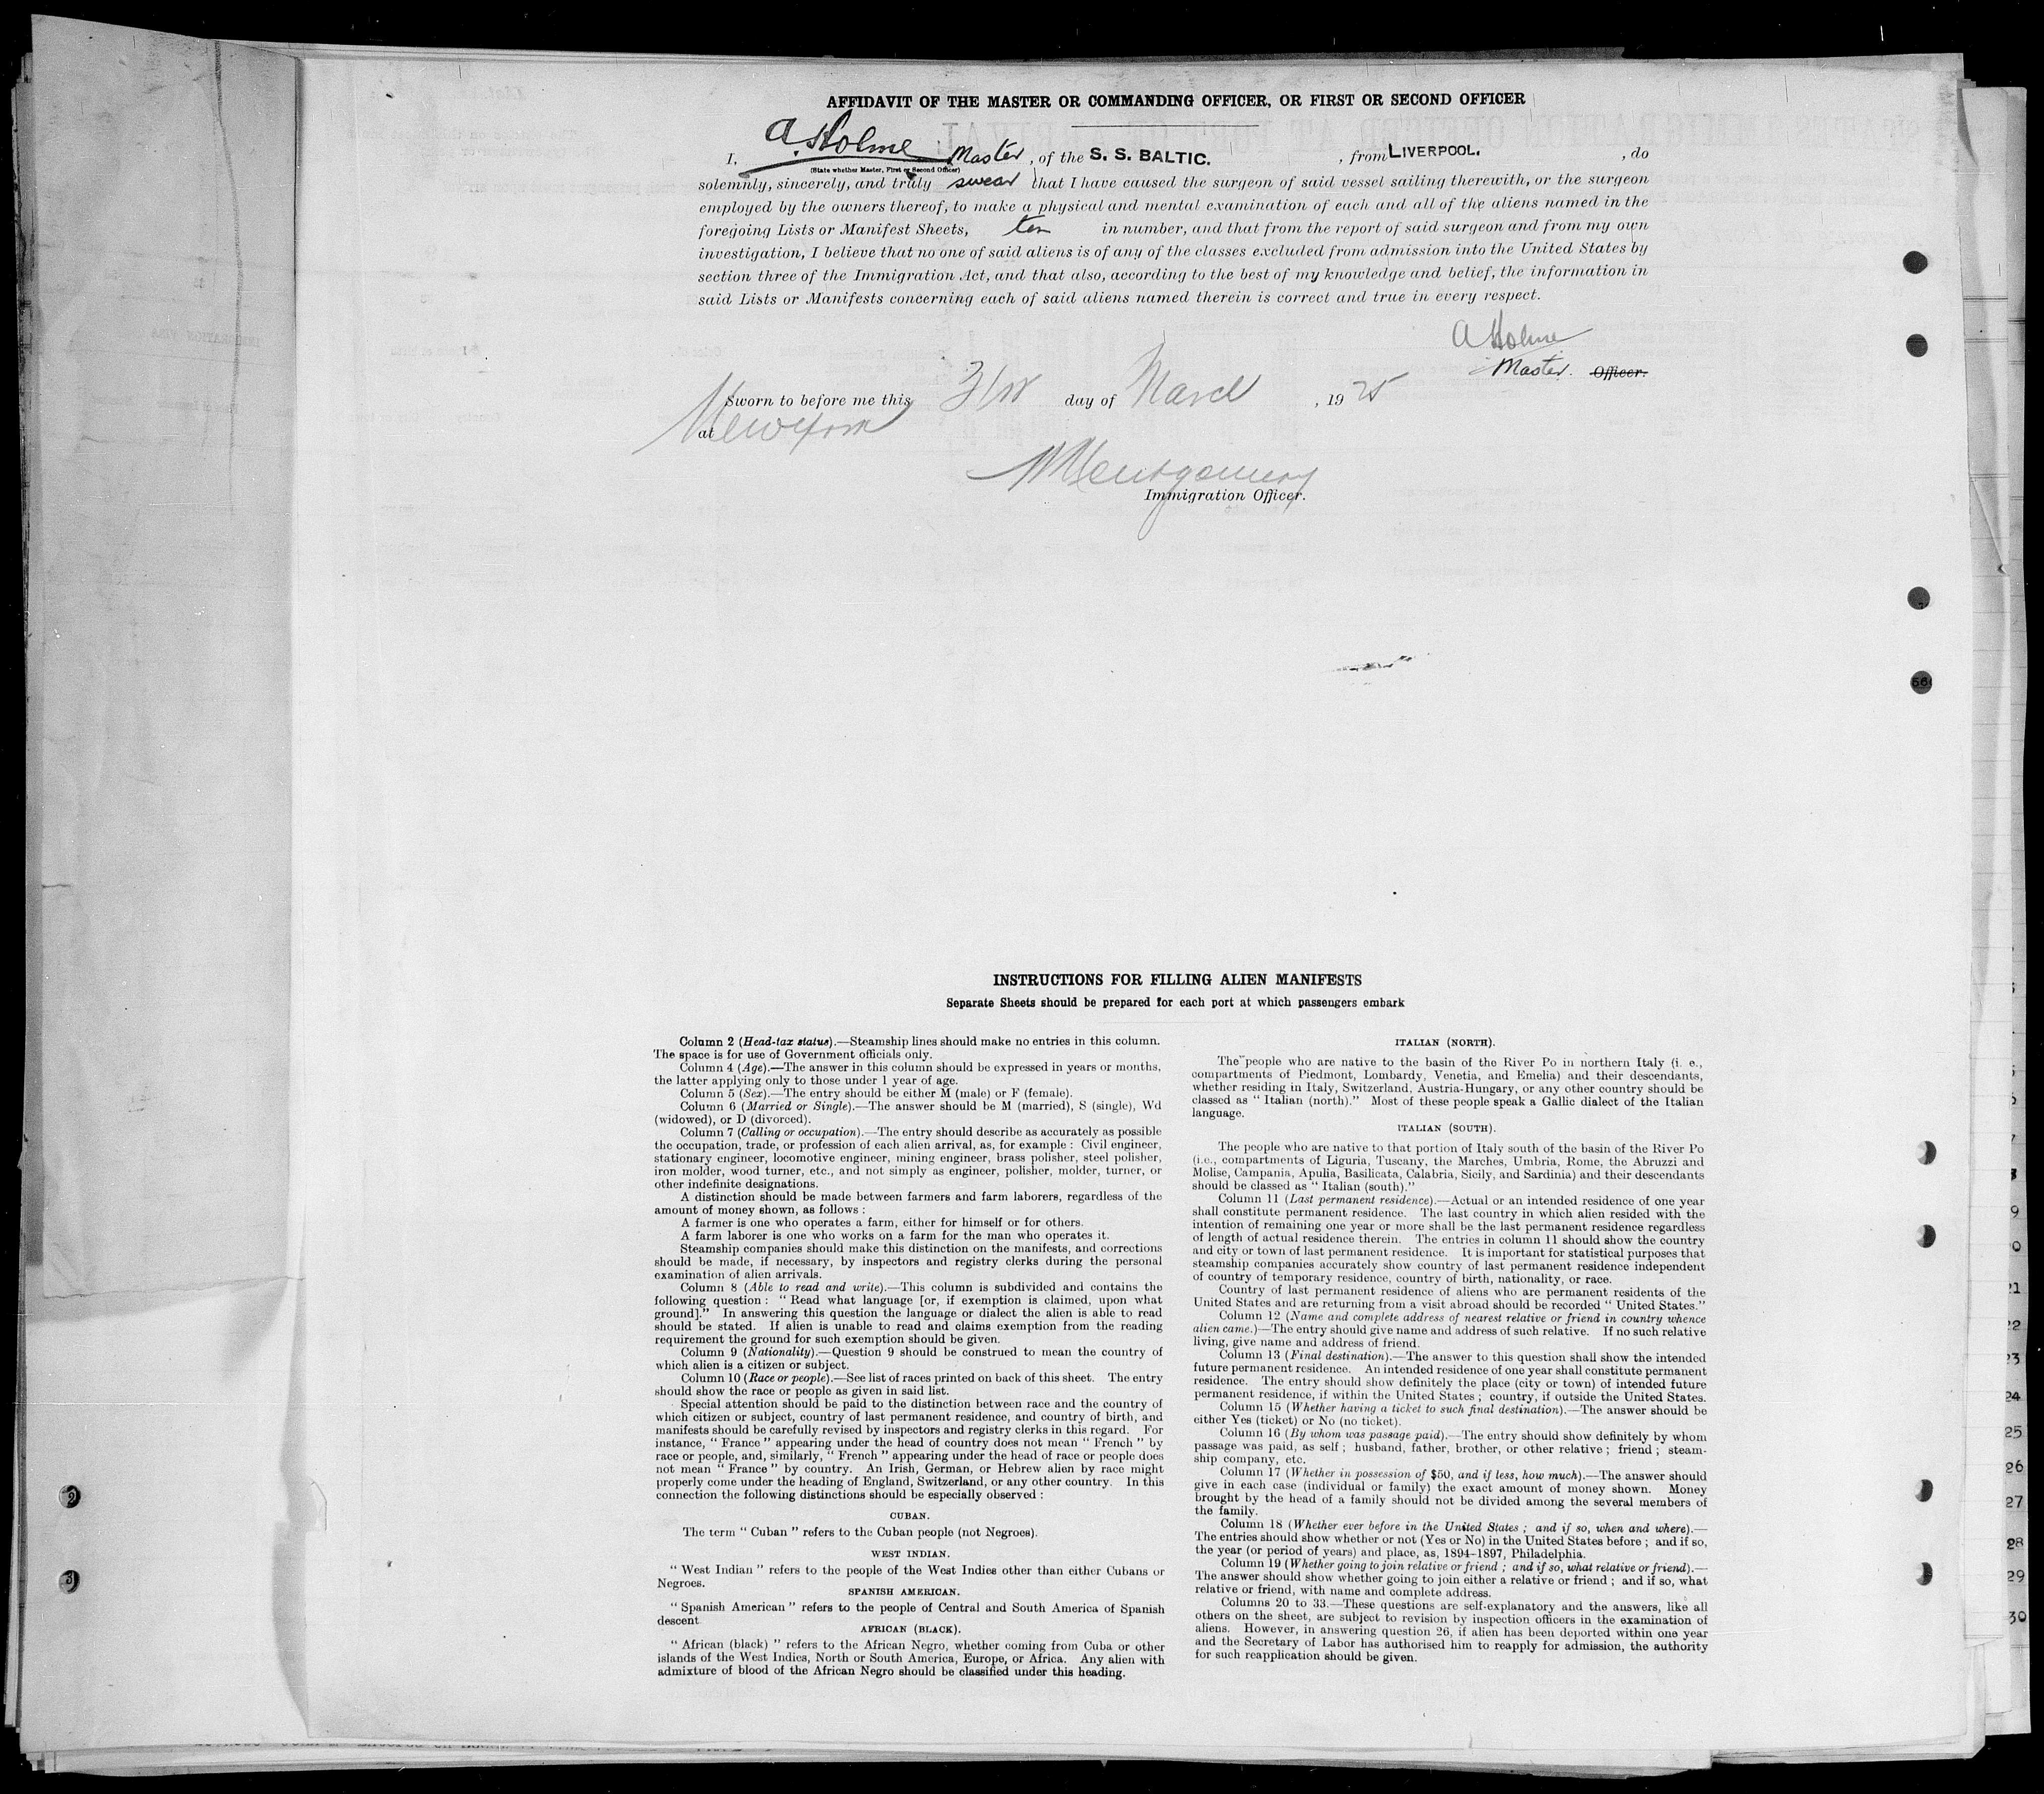 AFFIDAVIT OF THE MASTER OR COMMANDING OFFICER, OR FIRST OR SECOND OFFICER
I, A. Holme Master, of the S. S. BALTIC. , from LIVERPOOL. , do
(State whether Master, First or Second Officer)
solemnly, sincerely, and truly swear that I have caused the surgeon of said vessel sailing therewith, or the surgeon
employed by the owners thereof, to make a physical and mental examination of each and all of the aliens named in the
foregoing Lists or Manifest Sheets, ten in number, and that from the report of said surgeon and from my own
investigation, I believe that no one of said aliens is of any of the classes excluded from admission into the United States by
section three of the Immigration Act, and that also, according to the best of my knowledge and belief, the information in
said Lists or Manifests concerning each of said aliens named therein is correct and true in every respect.
A Holme
Master. Officer.
Sworn to before me this 31st day of March , 19 25
at New York
Montgomery
Immigration Officer.
INSTRUCTIONS FOR FILLING ALIEN MANIFESTS
Separate Sheets should be prepared for each port at which passengers embark
Column 2 (Head-tax status).—Steamship lines should make no entries in this column.
The space is for use of Government officials only.
Column 4 (Age).—The answer in this column should be expressed in years or months,
the latter applying only to those under 1 year of age.
Column 5 (Sex).—The entry should be either M (male) or F (female).
Column 6 (Married or Single).—The answer should be M (married), S (single), Wd
(widowed), or D (divorced).
Column 7 (Calling or occupation).—The entry should describe as accurately as possible
the occupation, trade, or profession of each alien arrival, as, for example : Civil engineer,
stationary engineer, locomotive engineer, mining engineer, brass polisher, steel polisher,
iron molder, wood turner, etc., and not simply as engineer, polisher, molder, turner, or
other indefinite designations.
A distinction should be made between farmers and farm laborers, regardless of the
amount of money shown, as follows :
A farmer is one who operates a farm, either for himself or for others.
A farm laborer is one who works on a farm for the man who operates it.
Steamship companies should make this distinction on the manifests, and corrections
should be made, if necessary, by inspectors and registry clerks during the personal
examination of alien arrivals.
Column 8 (Able to read and write).—This column is subdivided and contains the
following question : “ Read what language [or, if exemption is claimed, upon what
ground].” In answering this question the language or dialect the alien is able to read
should be stated. If alien is unable to read and claims exemption from the reading
requirement the ground for such exemption should be given.
Column 9 (Nationality).—Question 9 should be construed to mean the country of
which alien is a citizen or subject.
Column 10 (Race or people).—See list of races printed on back of this sheet. The entry
should show the race or people as given in said list.
Special attention should be paid to the distinction between race and the country of
which citizen or subject, country of last permanent residence, and country of birth, and
manifests should be carefully revised by inspectors and registry clerks in this regard. For
instance, “ France ” appearing under the head of country does not mean “ French ” by
race or people, and, similarly, “ French ” appearing under the head of race or people does
not mean “ France ” by country. An Irish, German, or Hebrew alien by race might
properly come under the heading of England, Switzerland, or any other country. In this
connection the following distinctions should be especially observed :
CUBAN.
The term “ Cuban ” refers to the Cuban people (not Negroes).
WEST INDIAN.
“ West Indian ” refers to the people of the West Indies other than either Cubans or
Negroes.
SPANISH AMERICAN.
“ Spanish American ” refers to the people of Central and South America of Spanish
descent
AFRICAN (BLACK).
“ African (black) ” refers to the African Negro, whether coming from Cuba or other
islands of the West Indies, North or South America, Europe, or Africa. Any alien with
admixture of blood of the African Negro should be classified under this heading.
ITALIAN (NORTH).
The people who are native to the basin of the River Po in northern Italy (i. e.,
compartments of Piedmont, Lombardy, Venetia, and Emelia) and their descendants,
whether residing in Italy, Switzerland, Austria-Hungary, or any other country should be
classed as “ Italian (north).” Most of these people speak a Gallic dialect of the Italian
language.
ITALIAN (SOUTH).
The people who are native to that portion of Italy south of the basin of the River Po
(i.e., compartments of Liguria, Tuscany, the Marches, Umbria, Rome, the Abruzzi and
Molise, Campania, Apulia, Basilicata, Calabria, Sicily, and Sardinia) and their descendants
should be classed as “ Italian (south).”
Column 11 (Last permanent residence).—Actual or an intended residence of one year
shall constitute permanent residence. The last country in which alien resided with the
intention of remaining one year or more shall be the last permanent residence regardless
of length of actual residence therein. The entries in column 11 should show the country
and city or town of last permanent residence. It is important for statistical purposes that
steamship companies accurately show country of last permanent residence independent
of country of temporary residence, country of birth, nationality, or race.
Country of last permanent residence of aliens who are permanent residents of the
United States and are returning from a visit abroad should be recorded “ United States.”
Column 12 (Name and complete address of nearest relative or friend in country whence
alien came.)—The entry should give name and address of such relative. If no such relative
living, give name and address of friend.
Column 13 (Final destination).—The answer to this question shall show the intended
future permanent residence. An intended residence of one year shall constitute permanent
residence. The entry should show definitely the place (city or town) of intended future
permanent residence, if within the United States ; country, if outside the United States.
Column 15 (Whether having a ticket to such final destination).—The answer should be
either Yes (ticket) or No (no ticket).
Column 16 (By whom was passage paid).—The entry should show definitely by whom
passage was paid, as self ; husband, father, brother, or other relative ; friend ; steam-
ship company, etc.
Column 17 (Whether in possession of $50, and if less, how much).—The answer should
give in each case (individual or family) the exact amount of money shown. Money
brought by the head of a family should not be divided among the several members of
the family.
Column 18 (Whether ever before in the United States ; and if so, when and where).—
The entries should show whether or not (Yes or No) in the United States before ; and if so,
the year (or period of years) and place, as, 1894-1897, Philadelphia.
Column 19 (Whether going to join relative or friend ; and if so, what relative or friend).—
The answer should show whether going to join either a relative or friend ; and if so, what
relative or friend, with name and complete address.
Columns 20 to 33.—These questions are self-explanatory and the answers, like all
others on the sheet, are subject to revision by inspection officers in the examination of
aliens. However, in answering question 26, if alien has been deported within one year
and the Secretary of Labor has authorised him to reapply for admission, the authority
for such reapplication should be given.
24
25
26
27
28
29
30